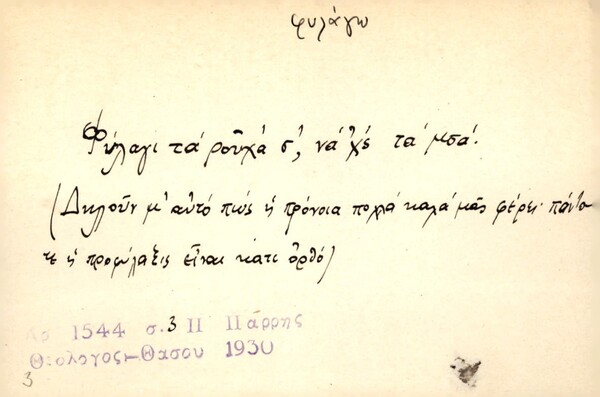 φυλάγω
Φύλαγι τά ροῦχά σ', νά 'χς τά μσά.
(Δηλοῦν μ' αὐτό πώς ἡ πρόνοια πολλά καλά μᾶς φέρει· πάντο
τε ἡ προφύλαξις εἶναι κάτι ὀρθό)
Αρ 1544 σ. 3 ΙΙ Πάρρης
Θεολογος-Θασου 1930
3